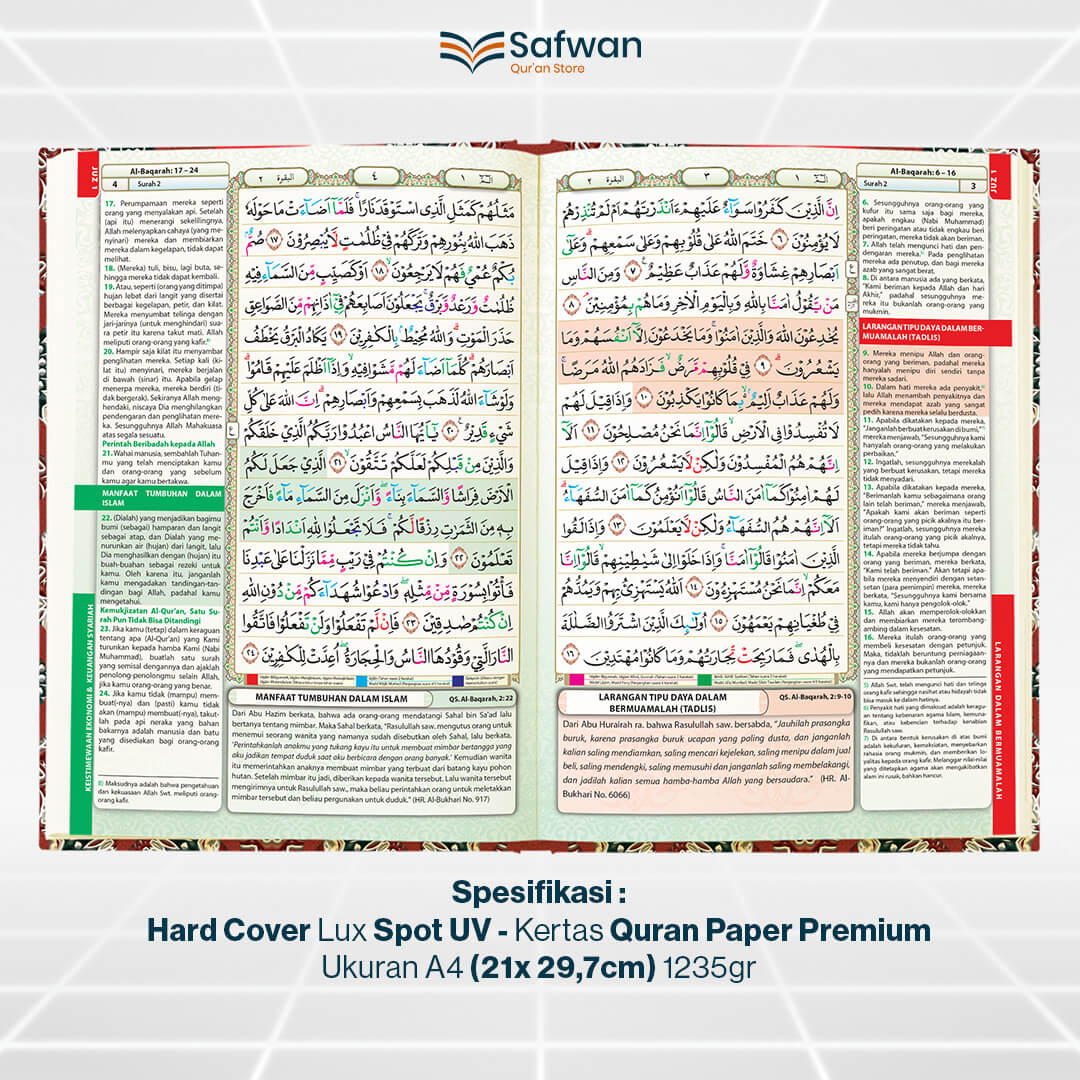 Safwan
Qur'an Store
JUZ 1
Al-Baqarah: 17 – 24
4
Surah 2
17. Perumpamaan mereka seperti
orang yang menyalakan api. Setelah
(api itu) menerangi sekelilingnya,
Allah melenyapkan cahaya (yang me-
nyinari) mereka dan membiarkan
mereka dalam kegelapan, tidak dapat
melihat.
18. (Mereka) tuli, bisu, lagi buta, se-
hingga mereka tidak dapat kembali.
19. Atau, seperti (orang yang ditimpa)
hujan lebat dari langit yang disertai
berbagai kegelapan, petir, dan kilat.
Mereka menyumbat telinga dengan
jari-jarinya (untuk menghindari) sua-
ra petir itu karena takut mati. Allah
meliputi orang-orang yang kafir.
20. Hampir saja kilat itu menyambar
penglihatan mereka. Setiap kali (ki-
lat itu) menyinari, mereka berjalan
di bawah (sinar) itu. Apabila gelap
menerpa mereka, mereka berdiri (ti-
dak bergerak). Sekiranya Allah meng-
hendaki, niscaya Dia menghilangkan
pendengaran dan penglihatan mere-
ka. Sesungguhnya Allah Mahakuasa
atas segala sesuatu.
Perintah Beribadah kepada Allah
21. Wahai manusia, sembahlah Tuhan-
mu yang telah menciptakan kamu
dan orang-orang yang sebelum
kamu agar kamu bertakwa.
MANFAAT TUMBUHAN DALAM
ISLAM
22. (Dialah) yang menjadikan bagimu
bumi (sebagai) hamparan dan langit
sebagai atap, dan Dialah yang me-
nurunkan air (hujan) dari langit, lalu
Dia menghasilkan dengan (hujan) itu
buah-buahan sebagai rezeki untuk
kamu. Oleh karena itu, janganlah
kamu mengadakan tandingan-tan-
dingan bagi Allah, padahal kamu
mengetahui.
Kemukjizatan Al-Qur'an, Satu Su-
rah Pun Tidak Bisa Ditandingi
23. Jika kamu (tetap) dalam keraguan
tentang apa (Al-Qur'an) yang Kami
turunkan kepada hamba Kami (Nabi
Muhammad), buatlah satu surah
yang semisal dengannya dan ajaklah
penolong-penolongmu selain Allah,
jika kamu orang-orang yang benar.
24. Jika kamu tidak (mampu) mem-
buat(-nya) dan (pasti) kamu tidak
akan (mampu) membuat(-nya), takut-
lah pada api neraka yang bahan
bakarnya adalah manusia dan batu
yang disediakan bagi orang-orang
kafir.
8) Maksudnya adalah bahwa pengetahuan
dan kekuasaan Allah Swt. meliputi orang-
orang kafir.
KEISTIMEWAAN EKONOMI & KEUANGAN SYARIAH
البقرة ٢
٤
الٓمّٓ ١
مَثَلُهُمْ كَمَثَلِ الَّذِى اسْتَوْقَدَ نَارًاۚ فَلَمَّآ اَضَاۤءَتْ مَا حَوْلَهٗ
ذَهَبَ اللّٰهُ بِنُوْرِهِمْ وَتَرَكَهُمْ فِيْ ظُلُمٰتٍ لَّا يُبْصِرُوْنَ ١٧ صُمٌّۢ
بُكْمٌ عُمْيٌ فَهُمْ لَا يَرْجِعُوْنَۙ ١٨ اَوْ كَصَيِّبٍ مِّنَ السَّمَاۤءِ فِيْهِ
ظُلُمٰتٌ وَّرَعْدٌ وَّبَرْقٌۚ يَجْعَلُوْنَ اَصَابِعَهُمْ فِيْٓ اٰذَانِهِمْ مِّنَ الصَّوَاعِقِ
حَذَرَ الْمَوْتِۗ وَاللّٰهُ مُحِيْطٌۢ بِالْكٰفِرِيْنَ ١٩ يَكَادُ الْبَرْقُ يَخْطَفُ
اَبْصَارَهُمْۗ كُلَّمَآ اَضَاۤءَ لَهُمْ مَّشَوْا فِيْهِۙ وَاِذَآ اَظْلَمَ عَلَيْهِمْ قَامُوْاۗ
وَلَوْ شَاۤءَ اللّٰهُ لَذَهَبَ بِسَمْعِهِمْ وَاَبْصَارِهِمْۗ اِنَّ اللّٰهَ عَلٰى كُلِّ
شَيْءٍ قَدِيْرٌ ٢٠ يٰٓاَيُّهَا النَّاسُ اعْبُدُوْا رَبَّكُمُ الَّذِيْ خَلَقَكُمْ
وَالَّذِيْنَ مِنْ قَبْلِكُمْ لَعَلَّكُمْ تَتَّقُوْنَۙ ٢١ الَّذِيْ جَعَلَ لَكُمُ
الْاَرْضَ فِرَاشًا وَّالسَّمَاۤءَ بِنَاۤءًۖ وَّاَنْزَلَ مِنَ السَّمَاۤءِ مَاۤءً فَاَخْرَجَ
بِهٖ مِنَ الثَّمَرٰتِ رِزْقًا لَّكُمْۚ فَلَا تَجْعَلُوْا لِلّٰهِ اَنْدَادًا وَّاَنْتُمْ
تَعْلَمُوْنَ ٢٢ وَاِنْ كُنْتُمْ فِيْ رَيْبٍ مِّمَّا نَزَّلْنَا عَلٰى عَبْدِنَا
فَأْتُوْا بِسُوْرَةٍ مِّنْ مِّثْلِهٖۖ وَادْعُوْا شُهَدَاۤءَكُمْ مِّنْ دُوْنِ اللّٰهِ
اِنْ كُنْتُمْ صٰدِقِيْنَ ٢٣ فَاِنْ لَّمْ تَفْعَلُوْا وَلَنْ تَفْعَلُوْا فَاتَّقُوا
النَّارَ الَّتِيْ وَقُوْدُهَا النَّاسُ وَالْحِجَارَةُۖ اُعِدَّتْ لِلْكٰفِرِيْنَ ٢٤
MANFAAT TUMBUHAN DALAM ISLAM
QS. Al-Baqarah, 2:22
Dari Abu Hazim berkata, bahwa ada orang-orang mendatangi Sahal bin Sa'ad lalu
bertanya tentang mimbar. Maka Sahal berkata, "Rasulullah saw. mengutus orang untuk
menemui seorang wanita yang namanya sudah disebutkan oleh Sahal, lalu berkata,
'Perintahkanlah anakmu yang tukang kayu itu untuk membuat mimbar bertangga yang
aku jadikan tempat duduk saat aku berbicara dengan orang banyak.' Kemudian wanita
itu memerintahkan anaknya membuat mimbar yang terbuat dari batang kayu pohon
hutan. Setelah mimbar itu jadi, diberikan kepada wanita tersebut. Lalu wanita tersebut
mengirimnya untuk Rasulullah saw., maka beliau perintahkan orang untuk meletakkan
mimbar tersebut dan beliau pergunakan untuk duduk." (HR. Al-Bukhari No. 917)
البقرة ٢
٣
الٓمّٓ ١
اِنَّ الَّذِيْنَ كَفَرُوْا سَوَاۤءٌ عَلَيْهِمْ ءَاَنْذَرْتَهُمْ اَمْ لَمْ تُنْذِرْهُمْ
لَا يُؤْمِنُوْنَ ٦ خَتَمَ اللّٰهُ عَلٰى قُلُوْبِهِمْ وَعَلٰى سَمْعِهِمْۗ وَعَلٰٓى
اَبْصَارِهِمْ غِشَاوَةٌ وَّلَهُمْ عَذَابٌ عَظِيْمٌ ٧ وَمِنَ النَّاسِ
مَنْ يَّقُوْلُ اٰمَنَّا بِاللّٰهِ وَبِالْيَوْمِ الْاٰخِرِ وَمَا هُمْ بِمُؤْمِنِيْنَۘ ٨
يُخٰدِعُوْنَ اللّٰهَ وَالَّذِيْنَ اٰمَنُوْاۚ وَمَا يَخْدَعُوْنَ اِلَّآ اَنْفُسَهُمْ وَمَا
يَشْعُرُوْنَۗ ٩ فِيْ قُلُوْبِهِمْ مَّرَضٌۙ فَزَادَهُمُ اللّٰهُ مَرَضًاۚ
وَلَهُمْ عَذَابٌ اَلِيْمٌۢ ەۙ بِمَا كَانُوْا يَكْذِبُوْنَ ١٠ وَاِذَا قِيْلَ لَهُمْ
لَا تُفْسِدُوْا فِى الْاَرْضِۙ قَالُوْٓا اِنَّمَا نَحْنُ مُصْلِحُوْنَ ١١ اَلَآ
اِنَّهُمْ هُمُ الْمُفْسِدُوْنَ وَلٰكِنْ لَّا يَشْعُرُوْنَ ١٢ وَاِذَا قِيْلَ
لَهُمْ اٰمِنُوْا كَمَآ اٰمَنَ النَّاسُ قَالُوْٓا اَنُؤْمِنُ كَمَآ اٰمَنَ السُّفَهَاۤءُۗ
اَلَآ اِنَّهُمْ هُمُ السُّفَهَاۤءُ وَلٰكِنْ لَّا يَعْلَمُوْنَ ١٣ وَاِذَا لَقُوا
الَّذِيْنَ اٰمَنُوْا قَالُوْٓا اٰمَنَّاۚ وَاِذَا خَلَوْا اِلٰى شَيٰطِيْنِهِمْۙ قَالُوْٓا اِنَّا
مَعَكُمْۙ اِنَّمَا نَحْنُ مُسْتَهْزِءُوْنَ ١٤ اَللّٰهُ يَسْتَهْزِئُ بِهِمْ وَيَمُدُّهُمْ
فِيْ طُغْيَانِهِمْ يَعْمَهُوْنَ ١٥ اُولٰۤىِٕكَ الَّذِيْنَ اشْتَرَوُا الضَّلٰلَةَ
بِالْهُدٰىۖ فَمَا رَبِحَتْ تِّجَارَتُهُمْ وَمَا كَانُوْا مُهْتَدِيْنَ ١٦
LARANGAN TIPU DAYA DALAM
BERMUAMALAH (TADLIS)
QS. Al-Baqarah, 2:9-10
Dari Abu Hurairah ra. bahwa Rasulullah saw. bersabda, "Jauhilah prasangka
buruk, karena prasangka buruk ucapan yang paling dusta, dan janganlah
kalian saling mendiamkan, saling mencari kejelekan, saling menipu dalam jual
beli, saling mendengki, saling memusuhi dan janganlah saling membelakangi,
dan jadilah kalian semua hamba-hamba Allah yang bersaudara." (HR. Al-
Bukhari No. 6066)
Al-Baqarah: 6 – 16
Surah 2
3
JUZ 1
6. Sesungguhnya orang-orang yang
kufur itu sama saja bagi mereka,
apakah engkau (Nabi Muhammad)
beri peringatan atau tidak engkau beri
peringatan, mereka tidak akan beriman.
7. Allah telah mengunci hati dan pen-
dengaran mereka. Pada penglihatan
mereka ada penutup, dan bagi mereka
azab yang sangat berat.
8. Di antara manusia ada yang berkata,
"Kami beriman kepada Allah dan hari
Akhir," padahal sesungguhnya me-
reka itu bukanlah orang-orang yang
mukmin.
LARANGAN TIPU DAYA DALAM BER-
MUAMALAH (TADLIS)
9. Mereka menipu Allah dan orang-
orang yang beriman, padahal mereka
hanyalah menipu diri sendiri tanpa
mereka sadari.
10. Dalam hati mereka ada penyakit,
lalu Allah menambah penyakitnya dan
mereka mendapat azab yang sangat
pedih karena mereka selalu berdusta.
11. Apabila dikatakan kepada mereka,
"Janganlah berbuat kerusakan di bumi,"
mereka menjawab, "Sesungguhnya kami
hanyalah orang-orang yang melakukan
perbaikan."
12. Ingatlah, sesungguhnya merekalah
yang berbuat kerusakan, tetapi mereka
tidak menyadari.
13. Apabila dikatakan kepada mereka,
"Berimanlah kamu sebagaimana orang
lain telah beriman," mereka menjawab,
"Apakah kami akan beriman seperti
orang-orang yang picik akalnya itu ber-
iman?" Ingatlah, sesungguhnya mereka
itulah orang-orang yang picik akalnya,
tetapi mereka tidak tahu.
14. Apabila mereka berjumpa dengan
orang yang beriman, mereka berkata,
"Kami telah beriman." Akan tetapi apa-
bila mereka menyendiri dengan setan-
setan (para pemimpin) mereka, mereka
berkata, "Sesungguhnya kami bersama
kamu, kami hanya pengolok-olok."
15. Allah akan memperolok-olokkan
dan membiarkan mereka terombang-
ambing dalam kesesatan.
16. Mereka itulah orang-orang yang
membeli kesesatan dengan petunjuk.
Maka, tidaklah beruntung perniagaan-
nya dan mereka bukanlah orang-orang
yang mendapatkan petunjuk.
5) Allah Swt. telah mengunci hati dan telinga
orang kafir sehingga nasihat atau hidayah tidak
bisa masuk ke dalam hatinya.
6) Penyakit hati yang dimaksud adalah keragu-
an tentang kebenaran agama Islam, kemuna-
fikan, atau kebencian terhadap kenabian
Rasulullah saw.
7) Di antara bentuk kerusakan di atas bumi
adalah kekufuran, kemaksiatan, menyebarkan
rahasia orang mukmin, dan memberikan lo-
yalitas kepada orang kafir. Melanggar nilai-nilai
yang ditetapkan agama akan mengakibatkan
alam ini rusak, bahkan hancur.
LARANGAN DALAM BERMUAMALAH
Spesifikasi :
Hard Cover Lux Spot UV - Kertas Quran Paper Premium
Ukuran A4 (21x 29,7cm) 1235gr